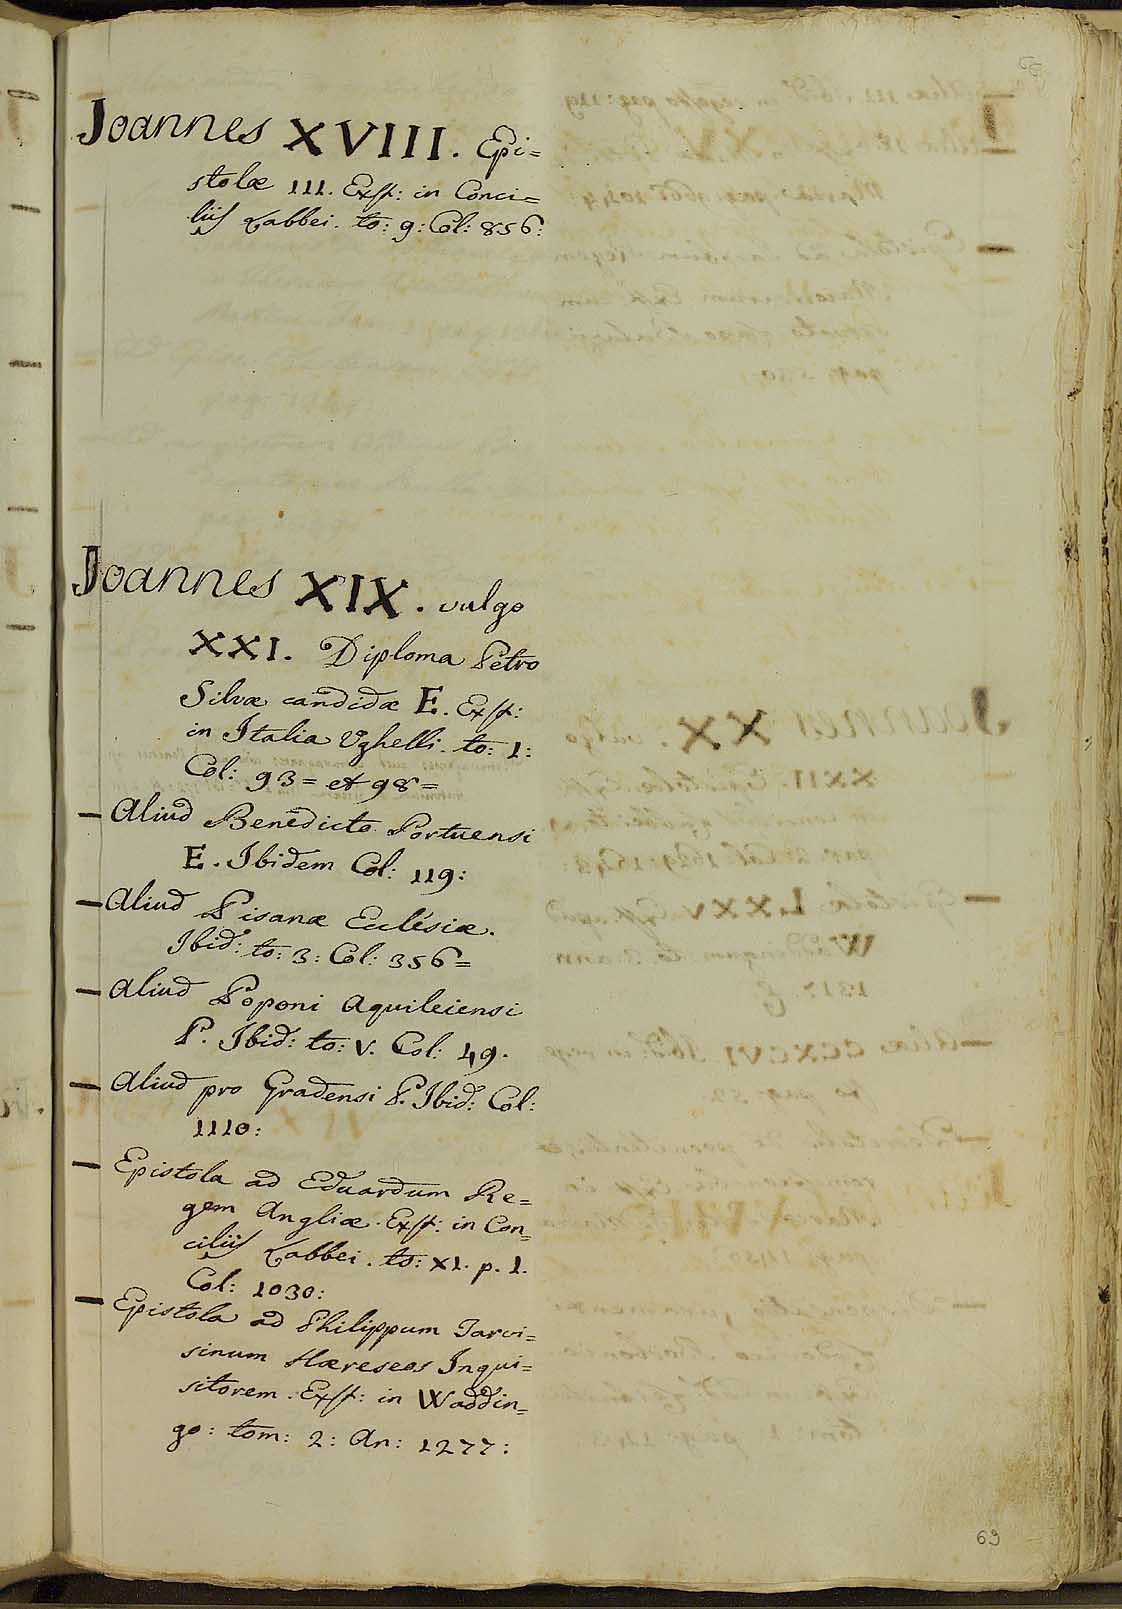 Joannes XVIII. Epi=
stolæ III. Exst: in Conci=
liis Labbei. to: 9: Col: 856:
Joannes XIX. vulgo
XXI. Diploma Petro
Silvæ candidæ E. Exst:
in Italia Ughelli. to: 1:
Col: 93= et 98=
— Aliud Benedicto Portuensi
E. Ibidem Col: 119:
— Aliud Pisanæ Eclésiæ.
Ibid: to: 3: Col: 356=
— Aliud Poponi Aquileiensi
P. Ibid: to: V. Col: 49.
— Aliud pro Gradensi P. Ibid: Col:
1110:
— Epistola ad Eduardum Re=
gem Angliæ. Exst: in Con=
ciliis Labbei. to: XI. p. 1.
Col: 1030:
— Epistola ad Philippum Tarvi=
sinum Hæreseos Inqui=
sitorem. Exst: in Waddin=
go: tom: 2: An: 1277:
69